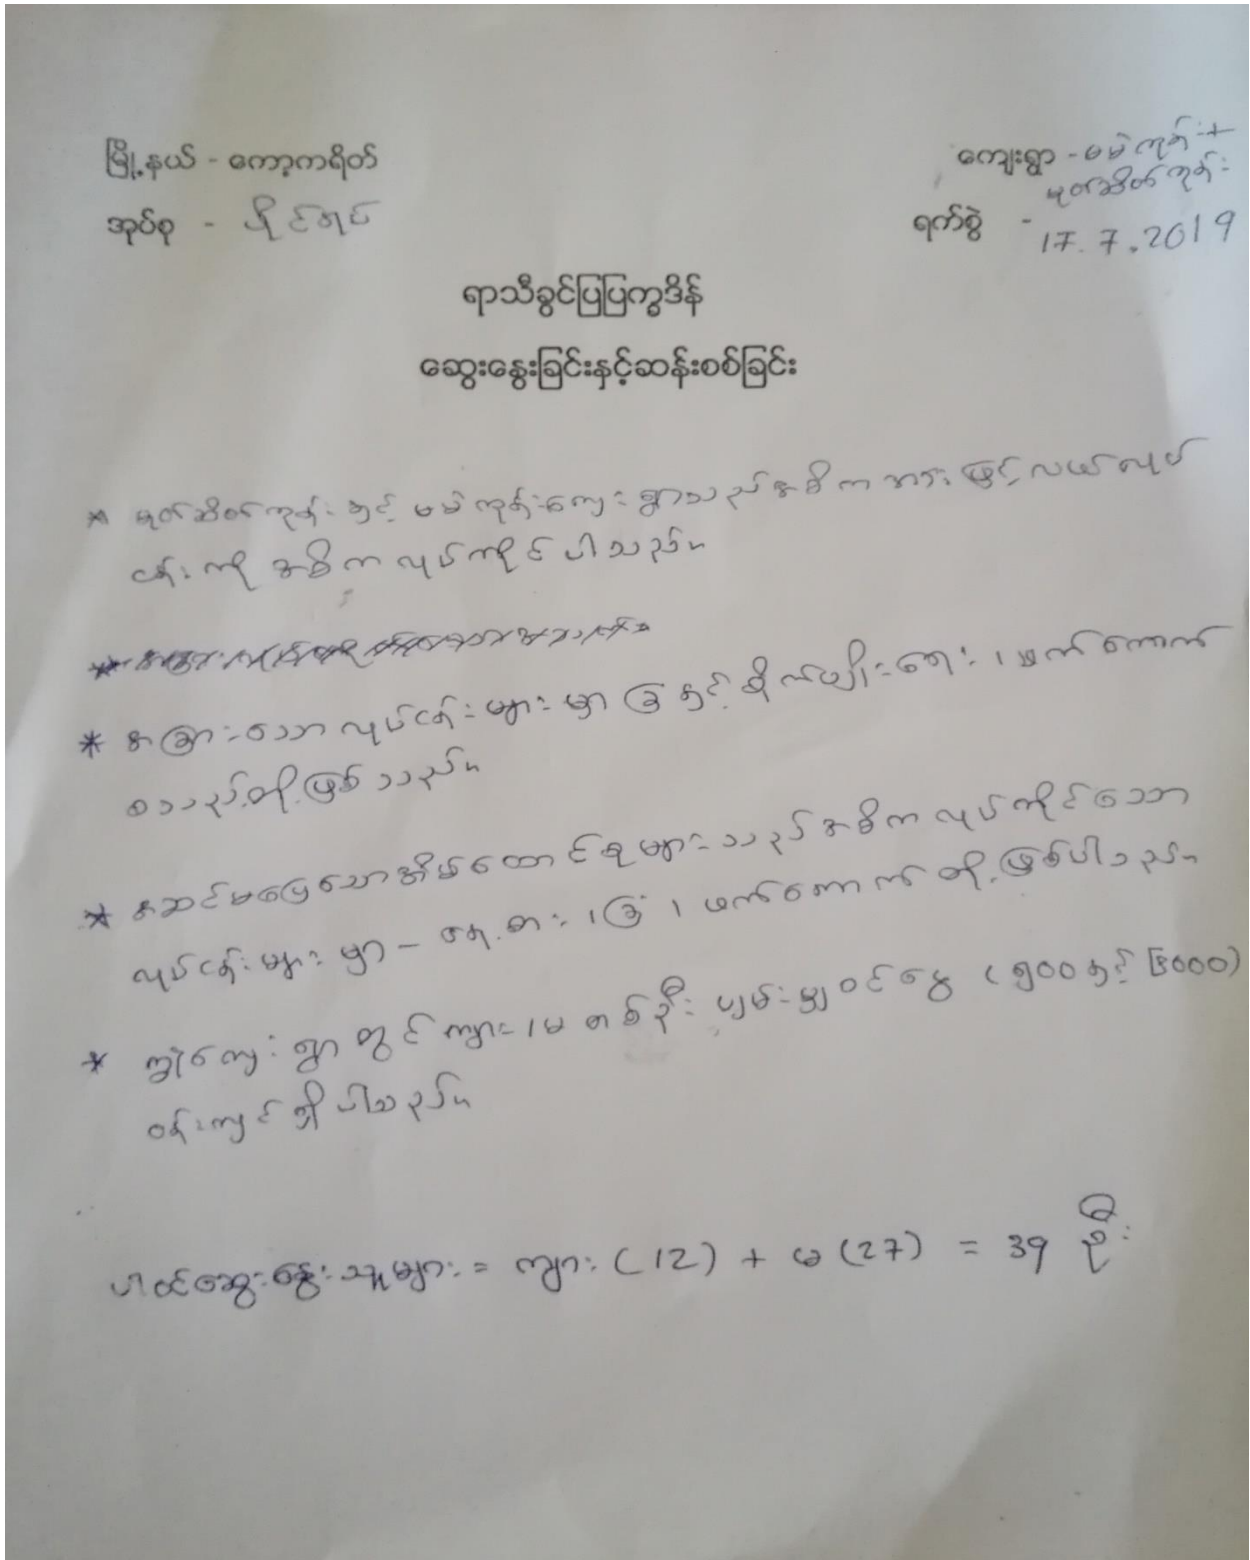 မြို့နယ် - ကော့ကရိတ်
ကျေးရွာ - မမဲကုန်း +
မုတ်ဆိတ်ကုန်း
အုပ်စု -
ရက်စွဲ - 17.7.2019
ရာသီခွင်ပြပြက္ခဒိန်
ဆွေးနွေးခြင်းနှင့်ဆန်းစစ်ခြင်း
* မုတ်ဆိတ်ကုန်း နှင့် မမဲကုန်းကျေးရွာသည် အဓိကအားဖြင့် လယ်လုပ်
ငန်းကို အဓိက လုပ်ကိုင်ပါသည်။
* အခြားသော လုပ်ငန်းများမှာ ခြံ နှင့် စိုက်ပျိုးရေး၊ ဖက်ကောက်
စသည်တို့ဖြစ်သည်။
* အဆင်မပြေသောအိမ်ထောင်စုများသည် အဓိက လုပ်ကိုင်သော
လုပ်ငန်းများမှာ - နေ့စား၊ ခြံ၊ ဖက်ကောက် တို့ဖြစ်ပါသည်။
* ကျေးရွာတွင် ကျား/မ တစ်ဦး ပျမ်းမျှဝင်ငွေ
ဝန်းကျင်ရှိပါသည်။
ပါဝင်ဆွေးနွေးသူများ = ကျား (12) + မ (27) = 39 ဦး